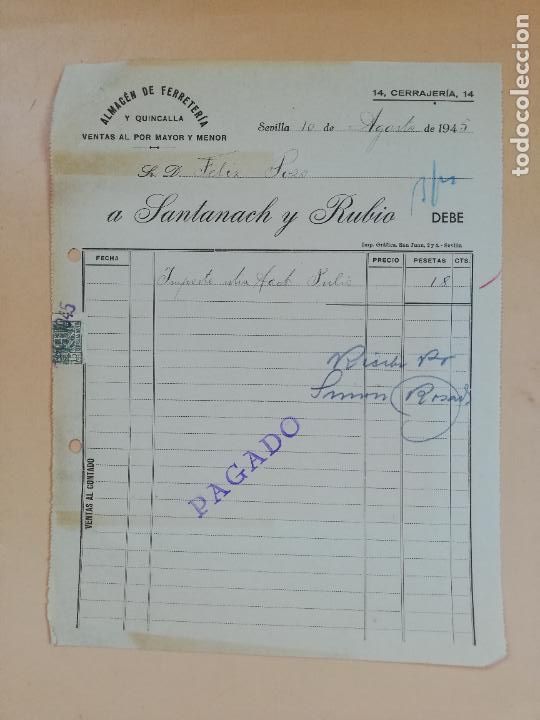 ALMACÉN DE FERRETERÍA
Y QUINCALLA
VENTAS AL POR MAYOR Y MENOR
14, CERRAJERÍA, 14
Sevilla 10 de Agosto de 1945
Sr. D. Felix Pozo
a Santanach y Rubio DEBE
Imp. Gráfica, San Juan, 2 y 4.-Sevilla
FECHA PRECIO PESETAS CTS.
Importe Julio 18
945
Recibi Por
Simon Rosado
PAGADO
VENTAS AL CONTADO
todocoleccion